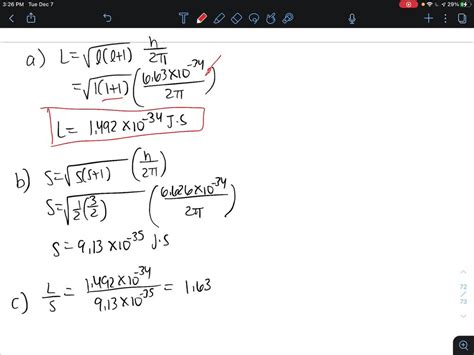 3:26 PM Tue Dec 7 29%
a) L = √l(l+1) h/2π
= √1(1+1) (6.63×10^-34/2π)
L = 1.492 ×10^-34 J.S
b) S = √s(s+1) (h/2π)
S = √1/2(3/2) (6.626×10^-34/2π)
S = 9.13 ×10^-35 J.S
c) L/S = 1.492×10^-34/9.13×10^-35 = 1.63
72
73